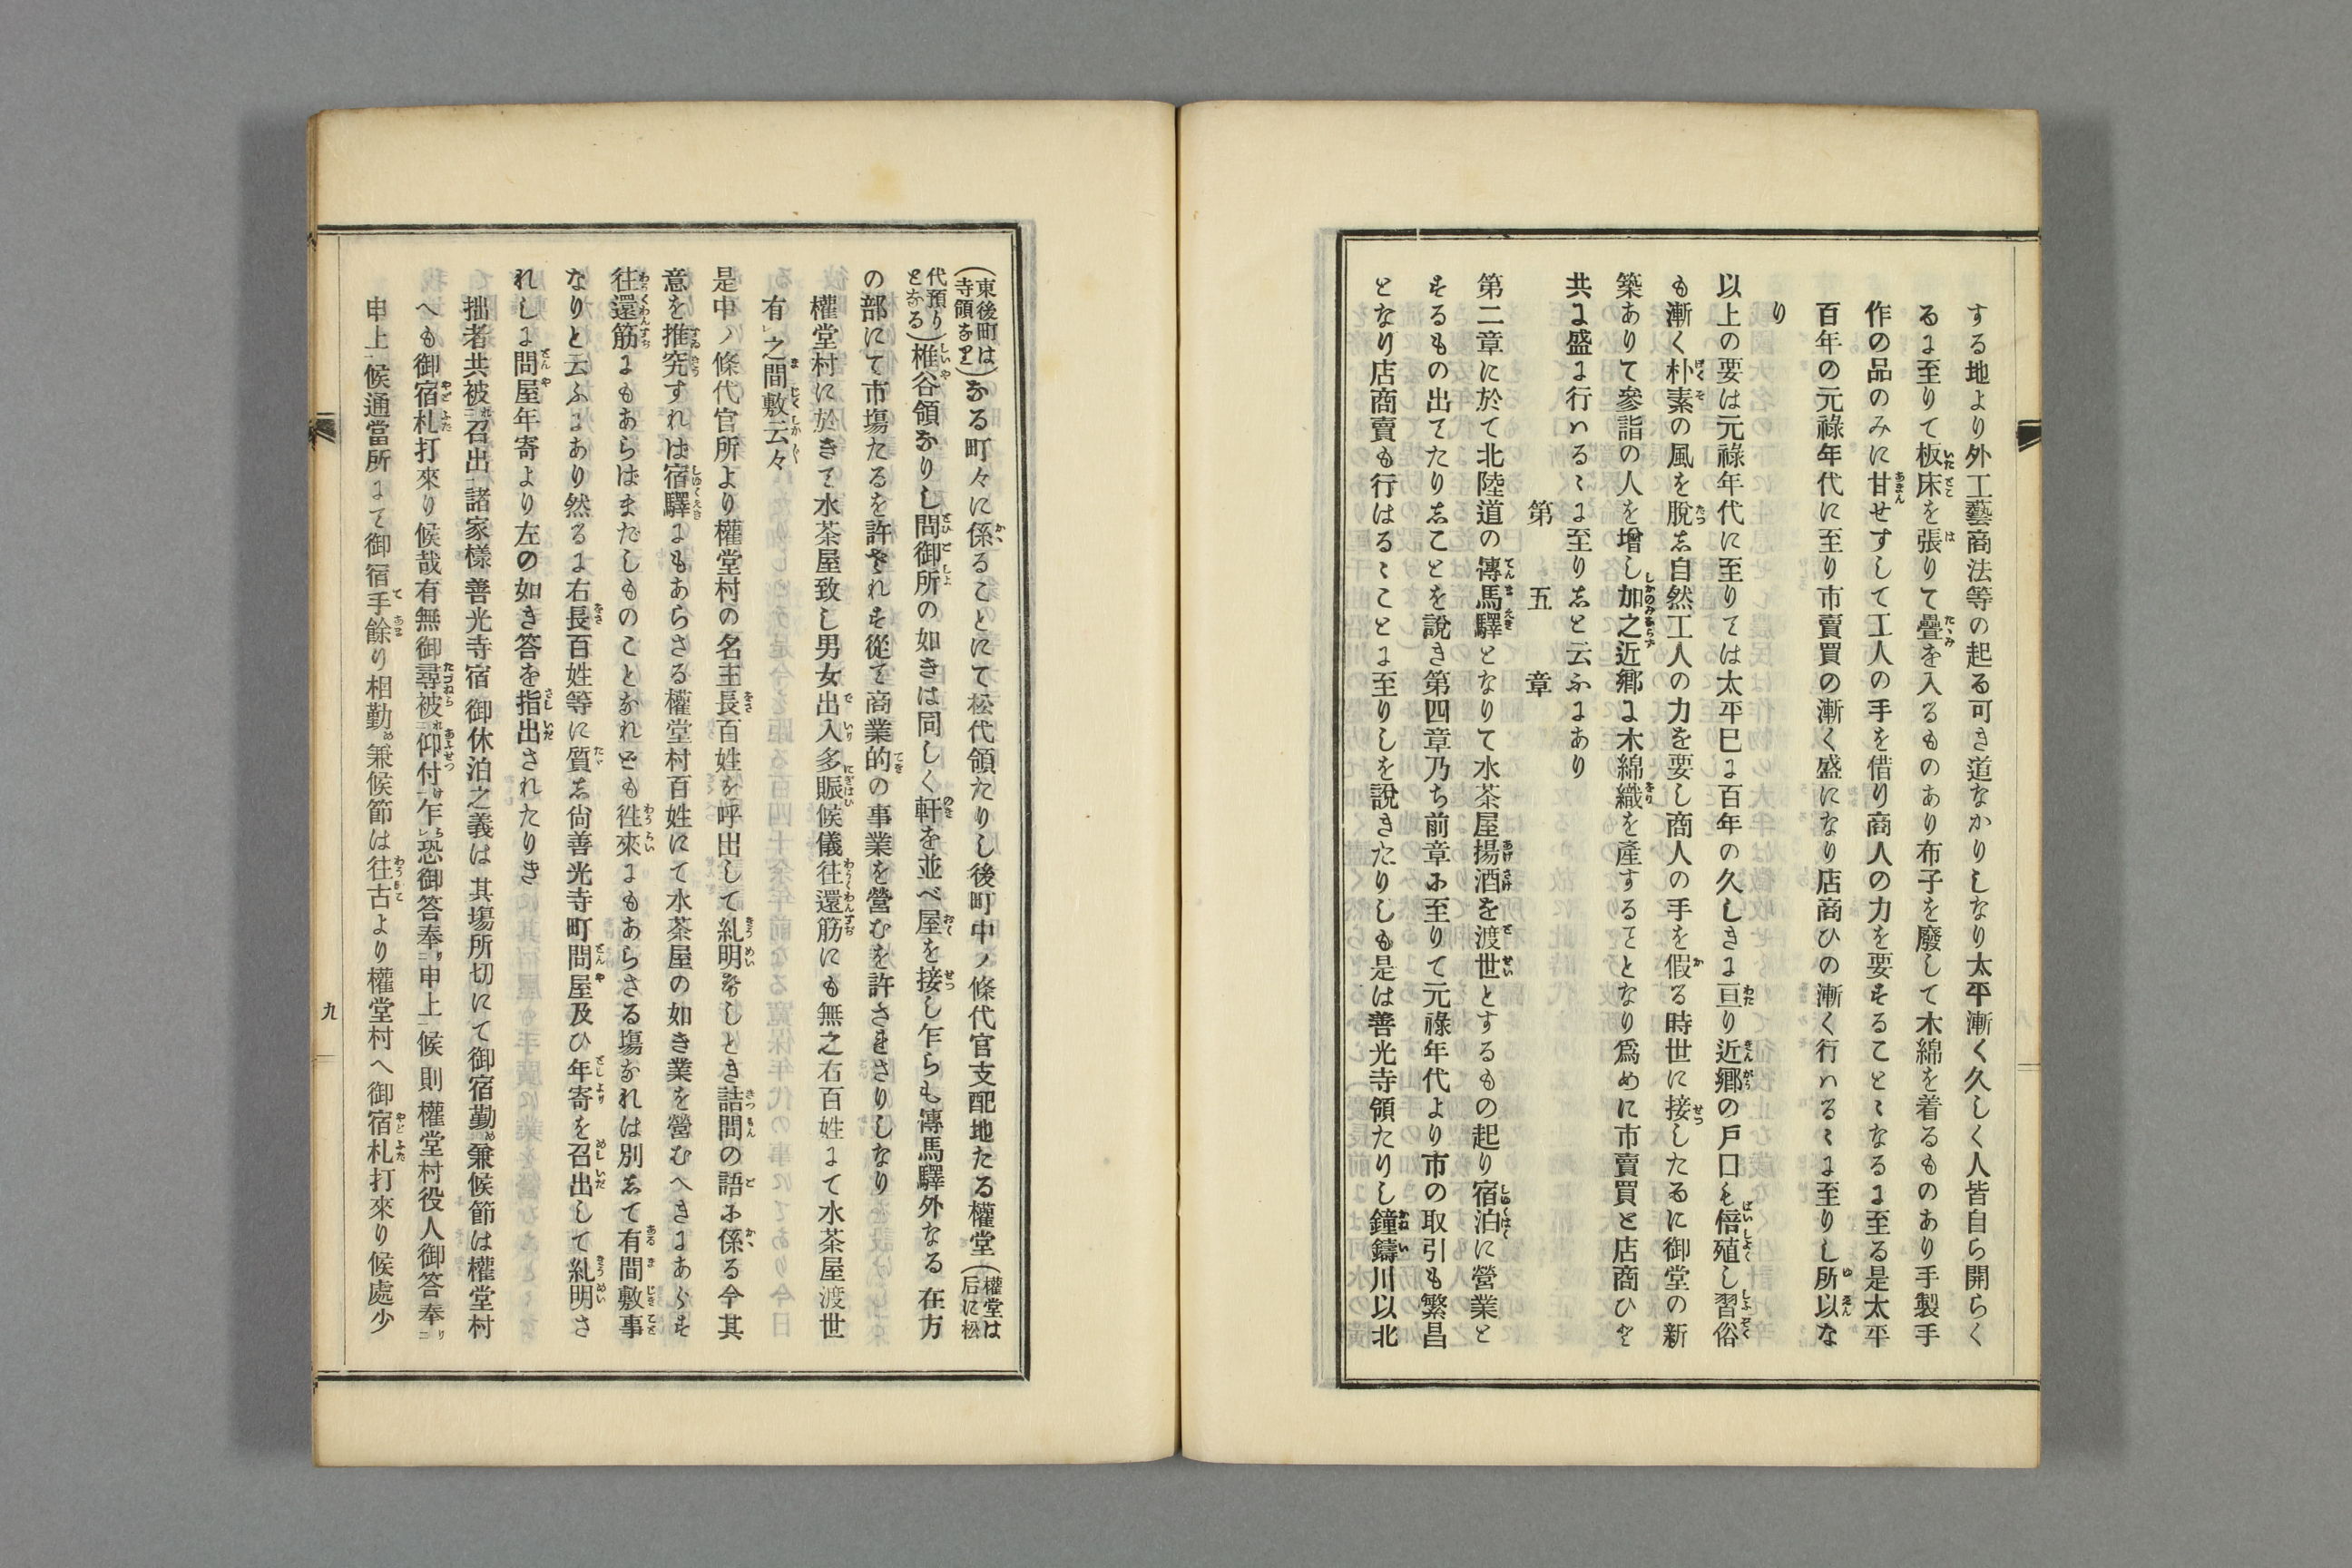 する地より外工藝商法等の起る可き道なかりしなり太平漸く久しく人皆自ら開らく
るに至りて板床を張りて疊を入るものあり布子を廢して木綿を着るものあり手製手
作の品のみに甘せすして工人の手を借り商人の力を要することゝなるに至る是太平
百年の元祿年代に至り市賣買の漸く盛になり店商ひの漸く行ハるゝに至りし所以な
り
以上の要は元祿年代に至りては太平巳に百年の久しきに亘り近鄕の戶口も倍殖し習俗
も漸く朴素の風を脫し自然工人の力を要し商人の手を假る時世に接したるに御堂の新
築ありて參詣の人を增し加之近鄕に木綿織を產するとなり爲めに市賣買と店商ひと
共に盛に行ハるゝに至りしと云ふにあり
第五章
第二章に於て北陸道の傳馬驛となりて水茶屋揚酒を渡世とするもの起り宿泊に營業と
するもの出てたりしことを說き第四章乃ち前章に至りて元祿年代より市の取引も繁昌
となり店商賣も行はるゝことに至りしを說きたりしも是は善光寺領たりし鐘鑄川以北
(東後町は寺領なり)なる町々に係ることにて松代領たりし後町中ノ條代官支配地たる權堂(權堂は后に松
代預りとなる)椎谷領なりし問御所の如きは同しく軒を並べ屋を接し乍らも傳馬驛外なる在方
の部にて市塲たるを許されす從て商業的の事業を營むを許さゝりしなり
權堂村に於きて水茶屋致し男女出入多賑候儀往還筋にも無之右百姓にて水茶屋渡世
有レ之間敷云々
是中ノ條代官所より權堂村の名主長百姓を呼出して糺明なしとき詰問の語に係る今其
意を推究すれは宿驛にもあらさる權堂村百姓にて水茶屋の如き業を營むへきにあらす
往還筋にもあらはまだしものことなれども徃來にもあらさる塲なれは別して有間敷事
なりと云ふにあり然るに右長百姓等に質し尙善光寺町問屋及ひ年寄を召出して糺明さ
れしに問屋年寄より左の如き答を指出されたりき
拙者共被二召出一諸家樣善光寺宿御休泊之義は其塲所切にて御宿勤め兼候節は權堂村
へも御宿札打來り候哉有無御尋被二仰付一乍レ恐御答奉二申上一候則權堂村役人御答奉二
申上一候通當所にて御宿手餘り相勤め兼候節は往古より權堂村へ御宿札打來り候處少
九